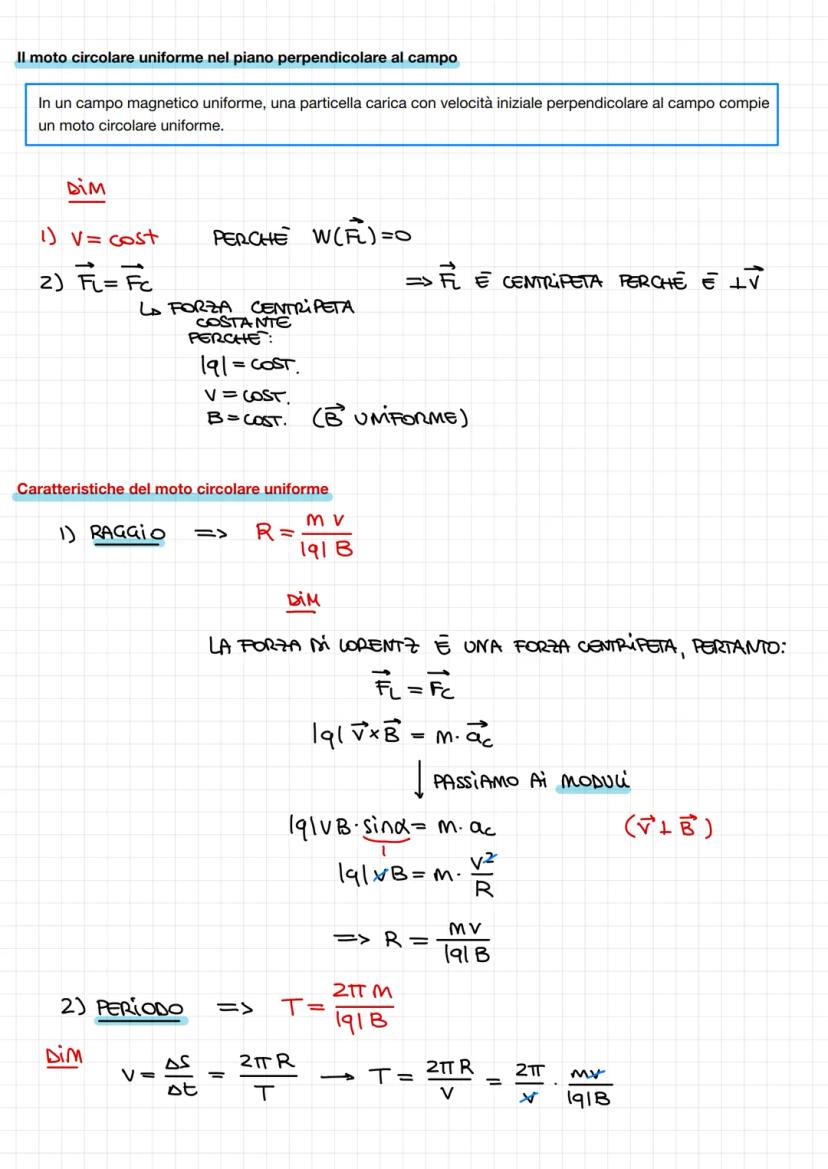 Il moto circolare uniforme nel piano perpendicolare al campo
In un campo magnetico uniforme, una particella carica con velocità iniziale perpendicolare al campo compie
un moto circolare uniforme.
DIM
1) V = COST PERCHÉ W(F⃗L)=0
2) F⃗L = F⃗C => F⃗L É CENTRIPETA PERCHÉ É ⊥V⃗
↳ FORZA CENTRIPETA
COSTANTE
PERCHÉ:
|q| = COST.
V = COST.
B = COST. (B⃗ UNIFORME)
Caratteristiche del moto circolare uniforme
1) RAGGIO => R = mv/|q|B
DIM
LA FORZA DI LORENTZ É UNA FORZA CENTRIPETA, PERTANTO:
F⃗L = F⃗C
|q| v⃗ × B⃗ = m · a⃗c
↓ PASSIAMO AI MODULI
|q|vB · sinα = m · ac (v⃗ ⊥ B⃗)
1
|q|vB = m · v²/R
=> R = mv/|q|B
2) PERIODO => T = 2πm/|q|B
DIM
V = ΔS/Δt = 2πR/T → T = 2πR/V = 2π/v · mv/|q|B